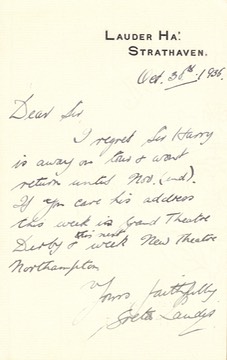 LAUDER HA'
STRATHAVEN.
Oct. 30th. 1936.
Dear Sir
I regret Sir Harry
is away on tour & wont
return until Nov. (end).
If you care his address
this week is Grand Theatre
Derby & this next week New Theatre
Northampton
Yours faithfully
Greta Lauder